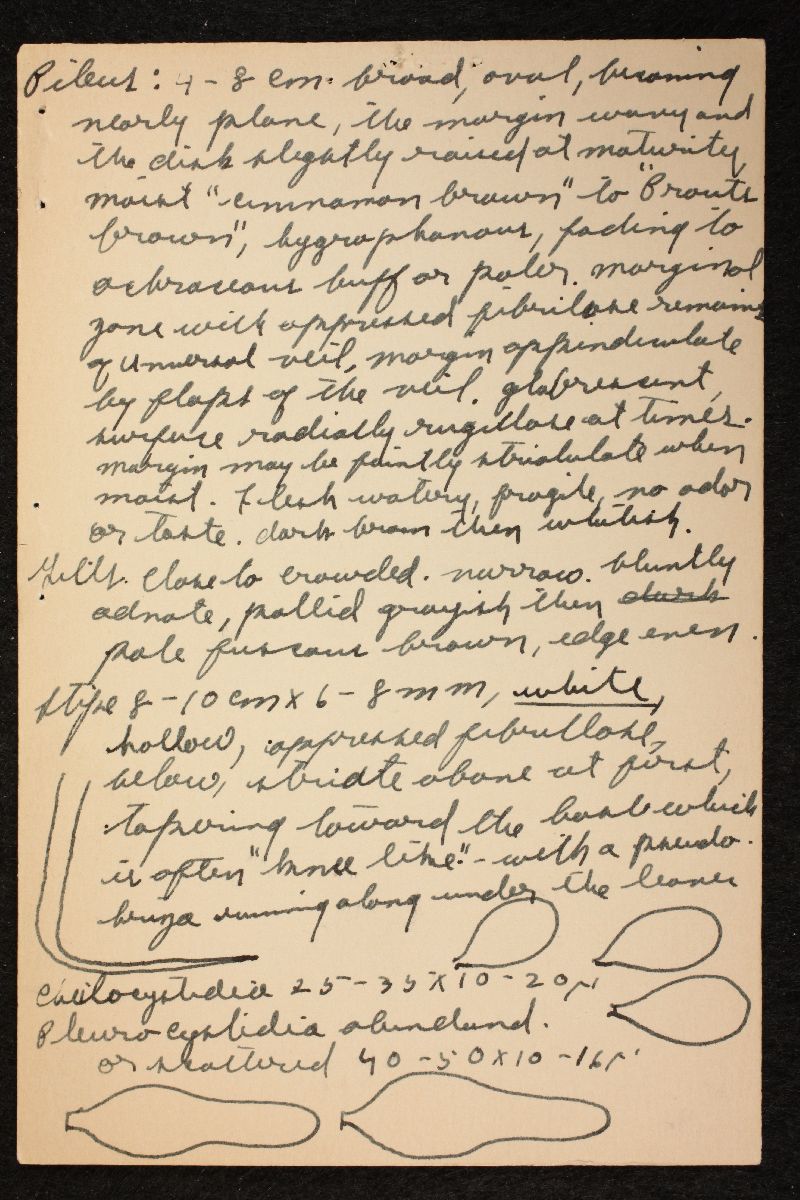 Pileus: 4-8 cm. broad, oval, becoming
nearly plane, the margin wavy and
the disk slightly raised at maturity,
moist "cinnamon brown" to "Prouts
brown", hygrophanous, fading to
ochraceous buff or paler. marginal
zone with appressed fibrillose remains
of universal veil, margin appindiculate
by flaps of the veil. glabrescent,
surface radially rugillose at times.
margin may be faintly striatulate when
moist. Flesh watery, fragile, no odor
or taste. dark brown then whitish.
Gills. Close to crowded. narrow. bluntly
adnate, pallid grayish then dark
pale fuscous brown, edge even.
Stipe 8-10 cm x 6-8 mm, white,
hollow, appressed fibrillose,
below, striate above at first,
tapering toward the base which
is often "knee like." - with a pseudo-
hriza running along under the leaves
Cheilocystidia 25-35 x 10-20 µ
Pleurocystidia abundand.
or scattered 40-50 x 10-16 µ